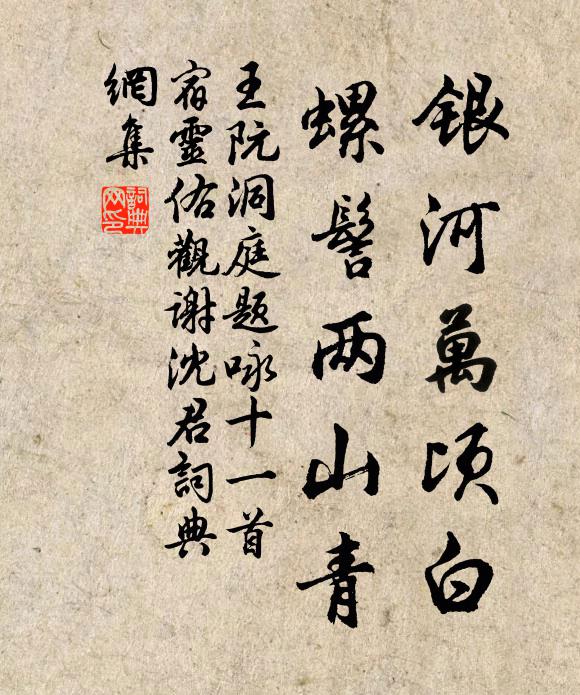 銀河萬頃白
螺髻两山青
王阮洞庭题咏十一首
宿靈佑觀谢沈君詞典
網集
詞典
网印